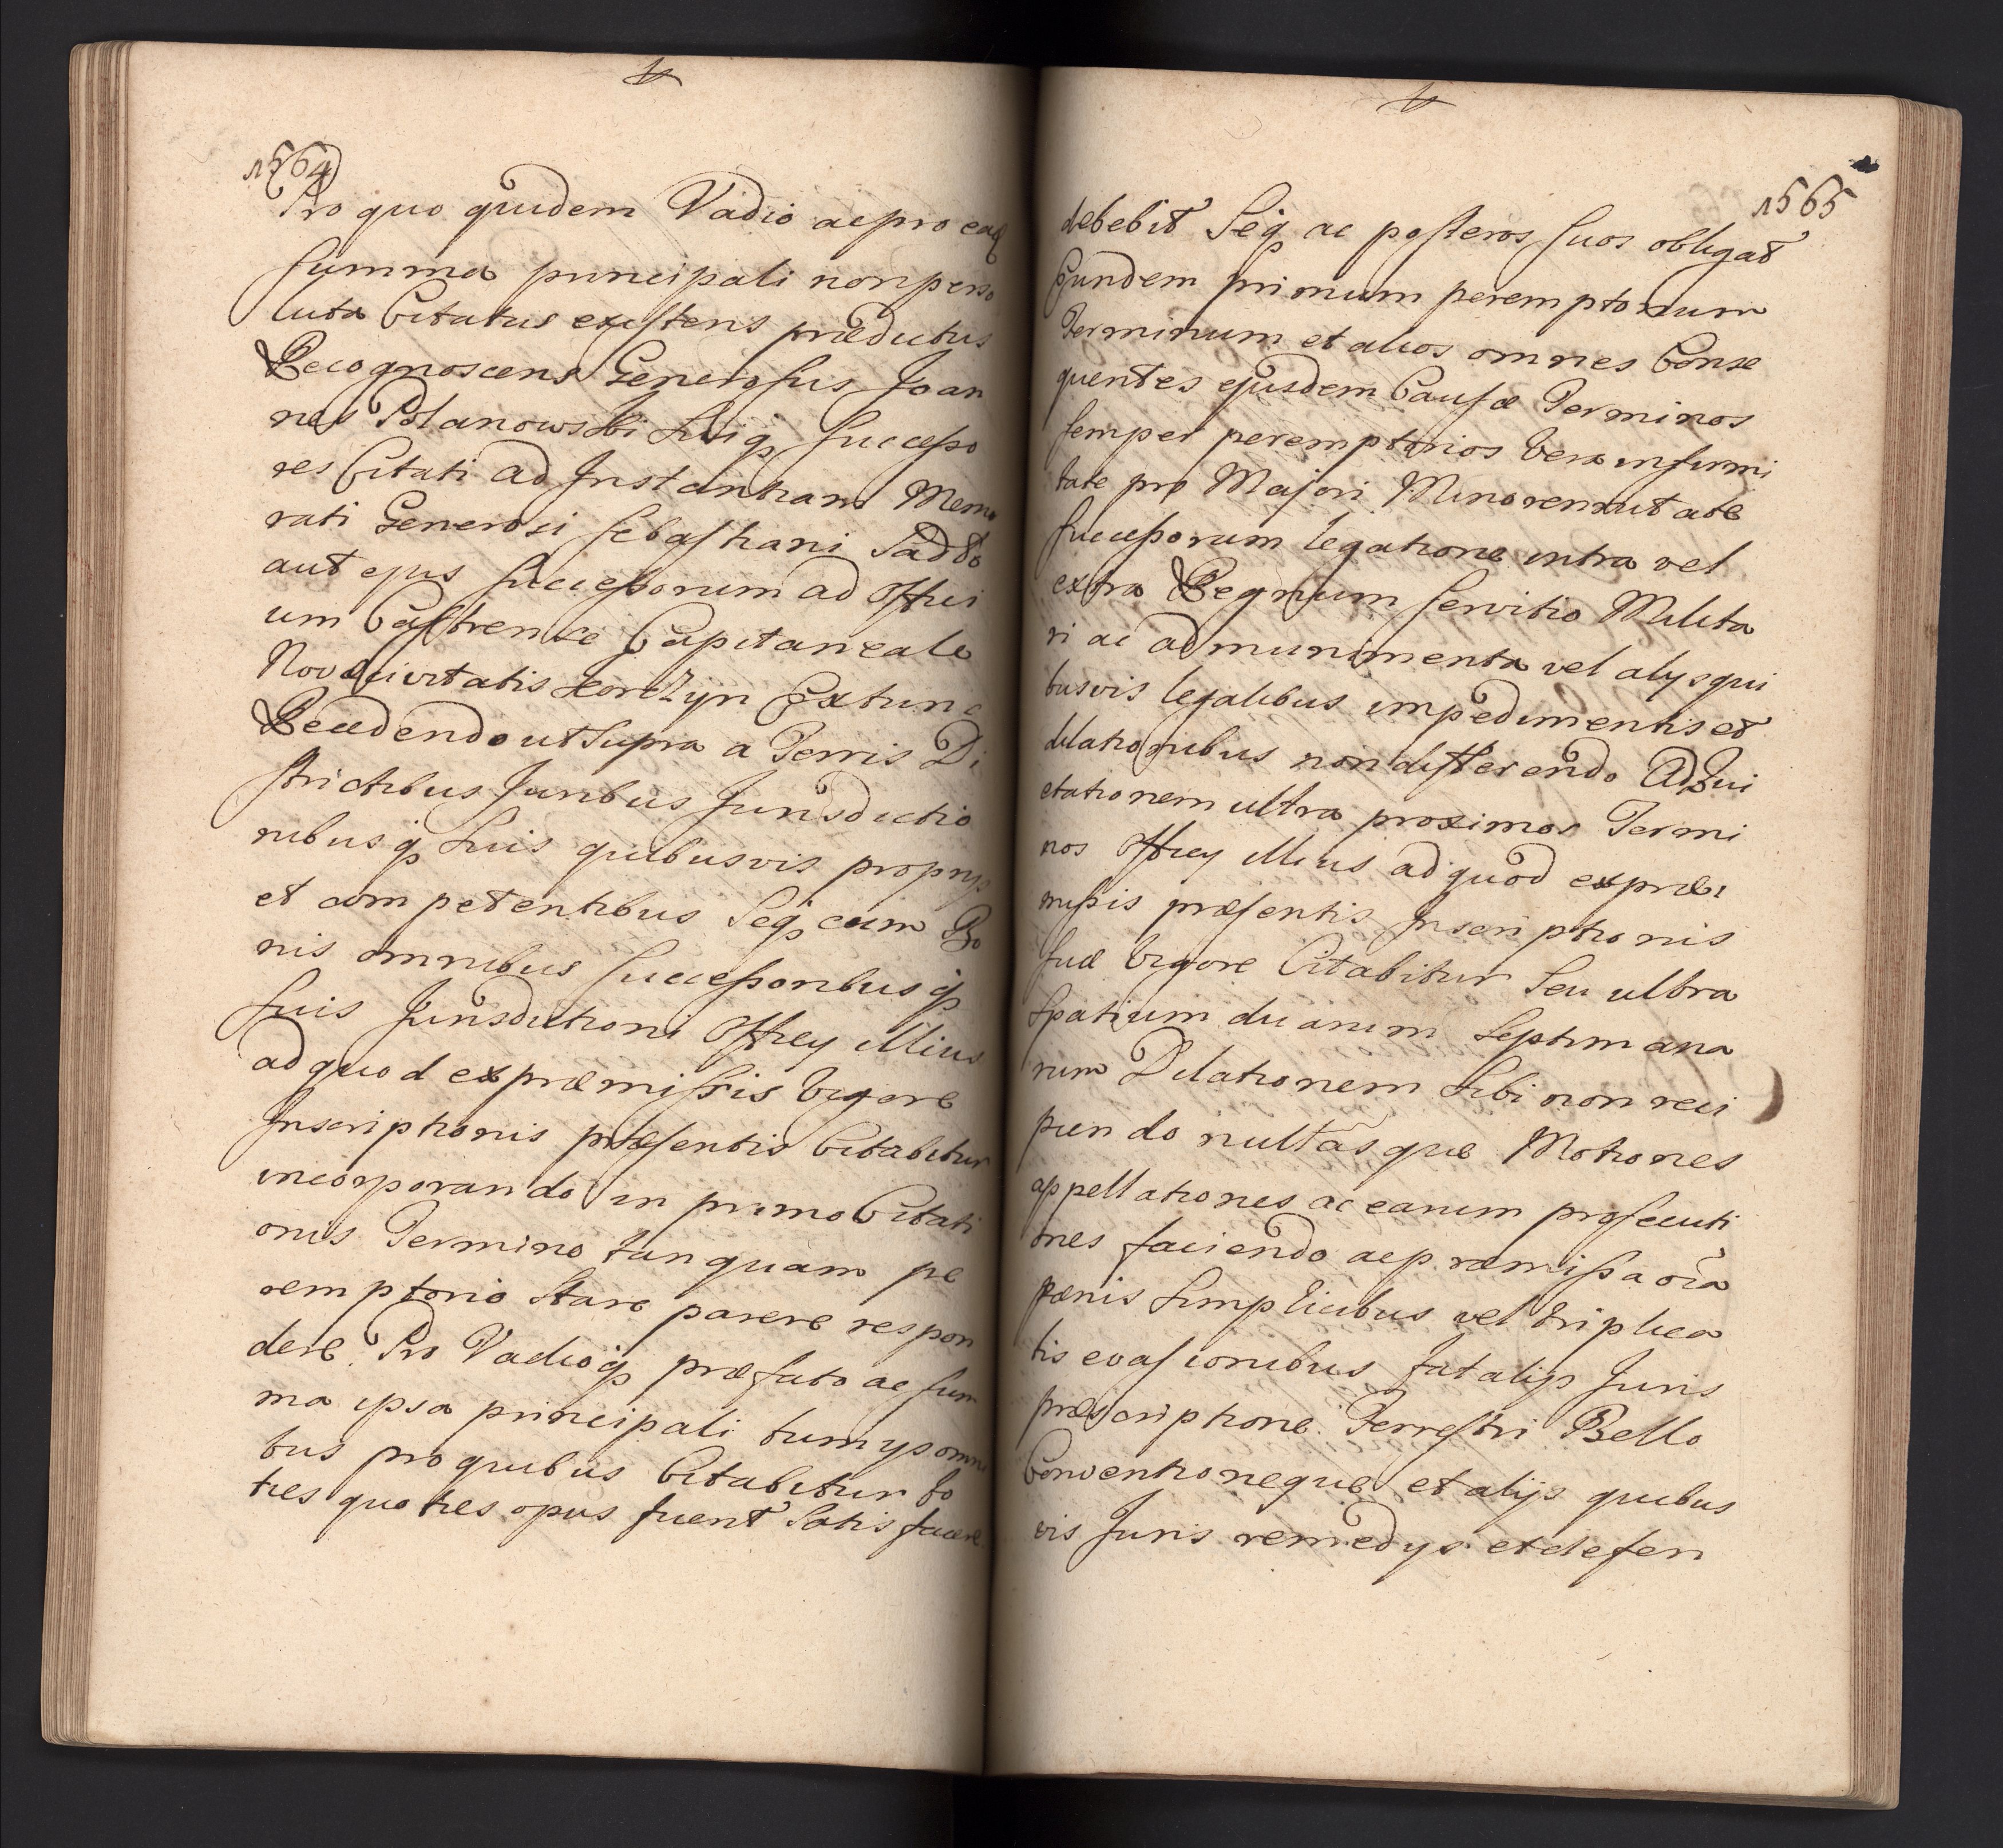 1564
Pro quo quidem Vadio ac pro eadē
Summa principali non perso
luta Citatus existens prædictus
Recognoscens Generosus Joan
nes Polanowski Suiq₃ Successo
res Citati ad Instantiam Memo
rati Generosi Sebastiani
aut ejus Successorum ad Offici
um Castrense Capitaneale
Novæ Civitatis Korczyn Extunc
Recedendo ut Supra a Terris Di
strictibus Juribus Jurisdictio
nibusq₃ Suis quibusvis proprijs
et competentibus Seq₃ cum Bo
nis omnibus Successoribusq₃
Suis Jurisdictioni Officy illius
ad quod ex præmissis Vigore
Inscriptionis præsentis Citabitur
incorporando in primo Citati
onis Termino tanquam pe
remptorio Stare parere respon
dere. Pro Vadioq₃ præfato ac Sum
ma ipsa principali tum ys omni
bus pro quibus Citabitur to
ties quoties opus fuerit Satisfacere
1565
debebit Seq₃ ac posteros suos obligat
Eundem primum peremptorium
Terminum et alios omnes Conse
quentes ejusdem Causæ Terminos
semper peremptorios Vera infirmi
tate pro Majori Minorennitate
Successorum legatione intra vel
extra Regnum servitio Milita
ri ac ad munimenta vel alys qui
busvis legalibus impedimentis et
dilationibus non differendo Ad Qui
etationem ultra proximos Termi
nos Officy illius ad quod ex præ
missis præsentis Inscriptionis
suæ Vigore Citabitur Seu ultra
Spatium duarum Septimana
rum Dilationem Sibi non reci
piendo nullasque Motiones
appellationes ac earum prosecuti
ones faciendo ac præmissa oīa
pænis Simplicibus vel triplica
tis evasionibus fatalis Juris
præscriptione Terrestri Bello
Conventioneque et alijs quibus
vis Juris remedys et defen